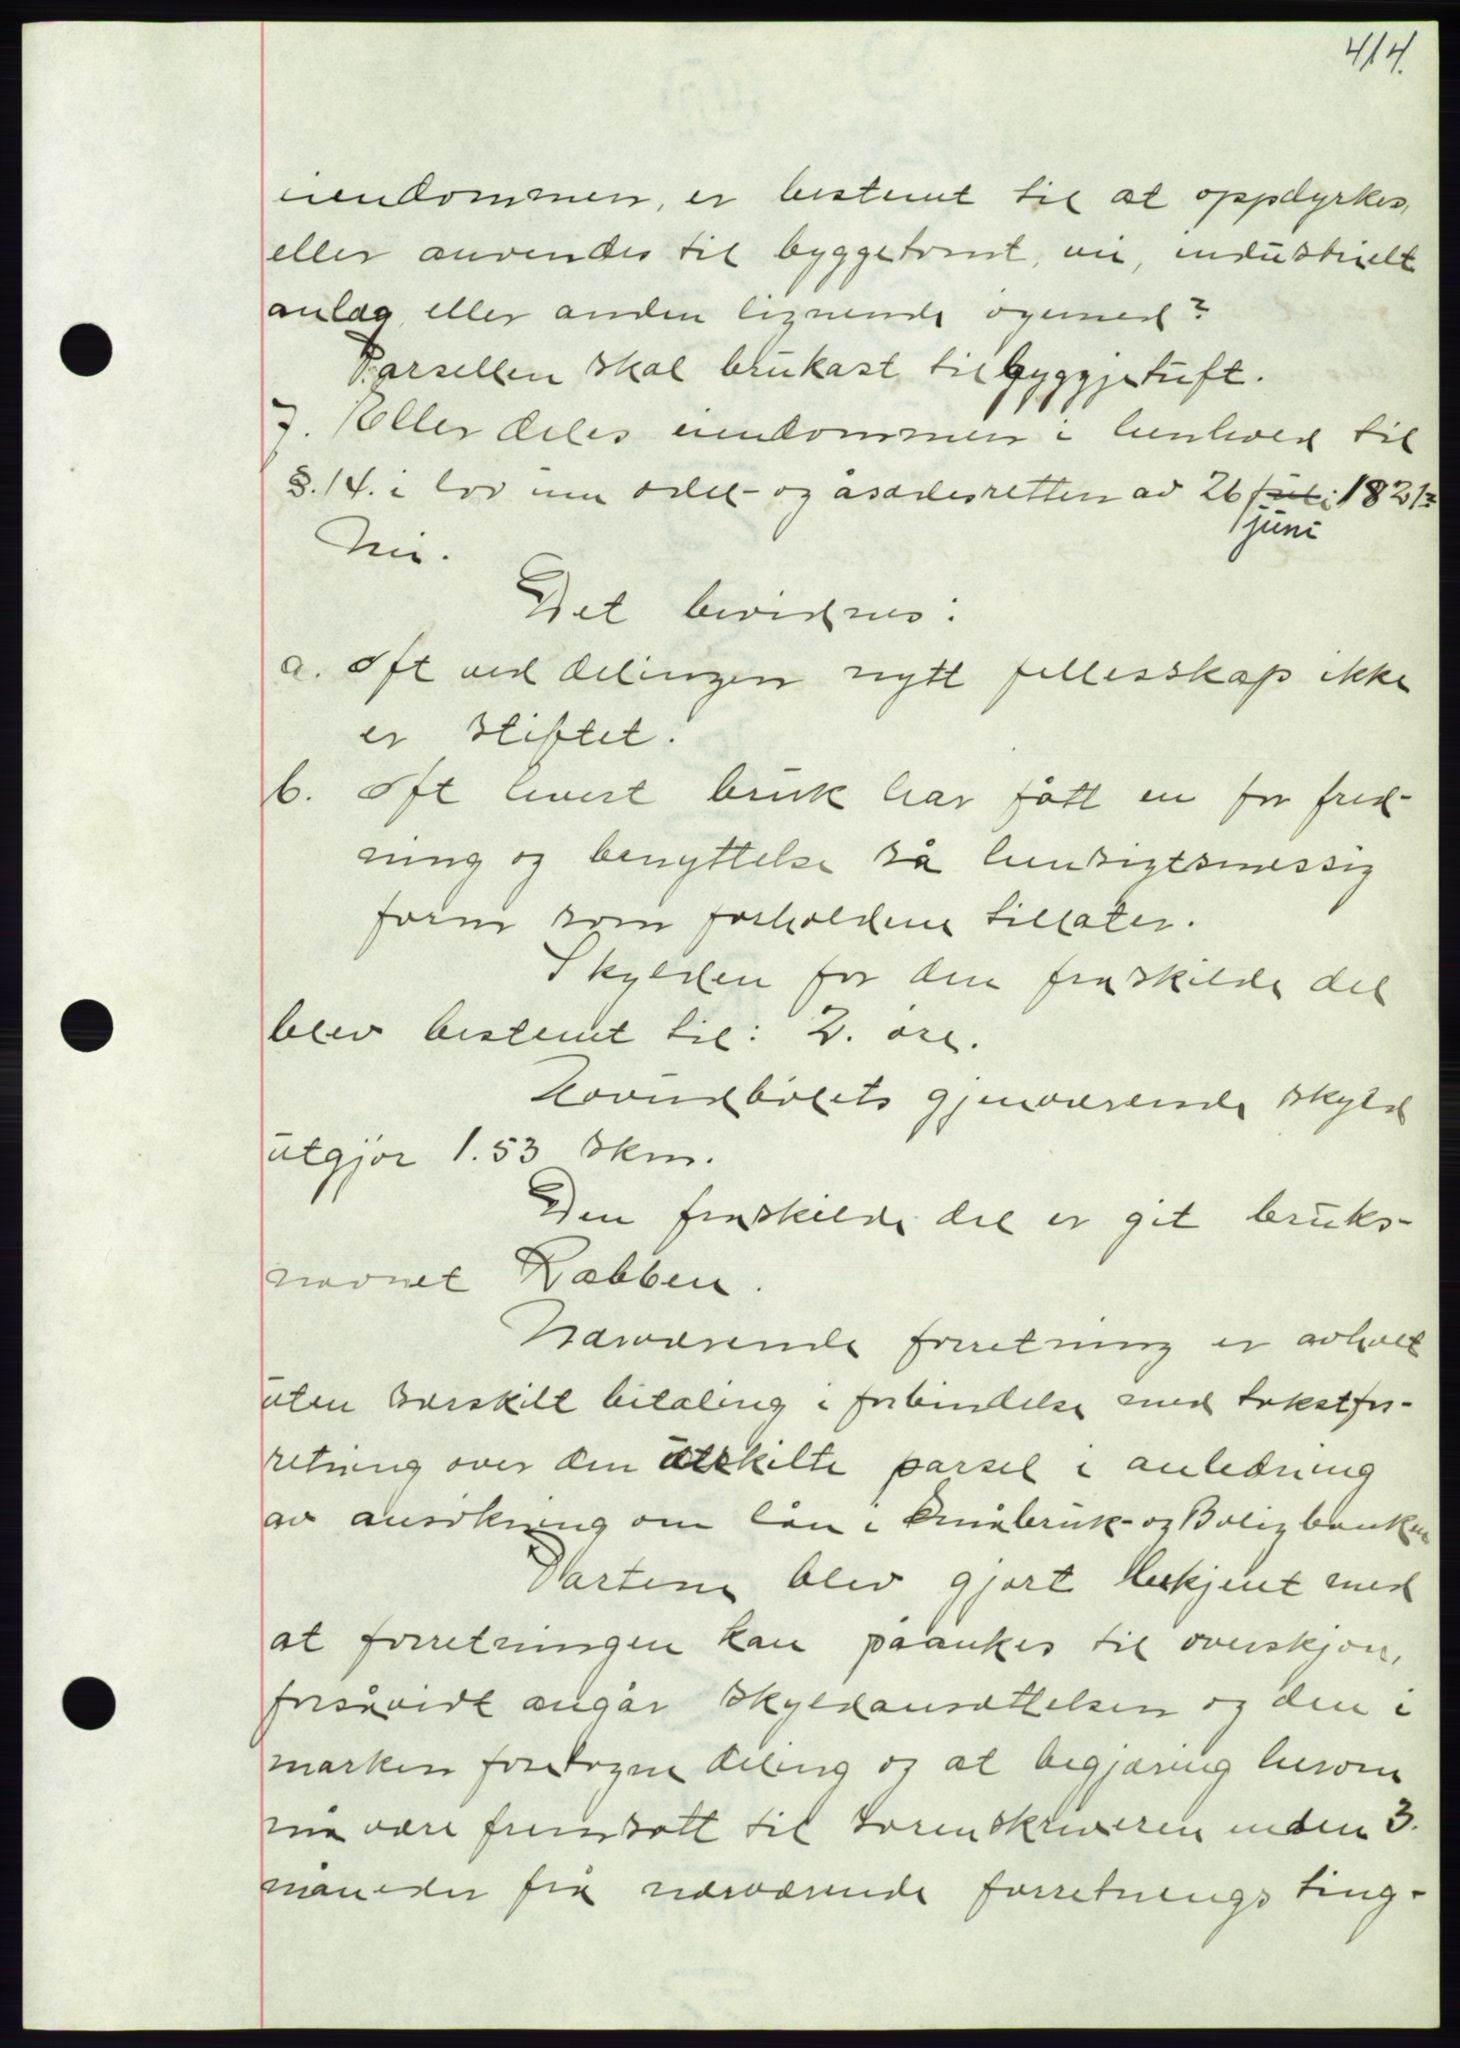 414.
eiendommen, er bestemt til at oppdyrkes,
eller anvendes til byggetomt, vei, industrielt
anlæg eller anden lignende øiemed?
Parsellen skal brukast til byggjetuft.
7. Eller deles eiendommen i henhold til
§. 14. i lov um odel- og åsædesretten av 26 juli 1821?
juni
Nei.
Det bevidnes:
a. At ved delingen nytt fellesskap ikke
er stiftet.
b. At hvert bruk har fått en for fred-
ning og benyttelse så hensigtsmessig
form som forholdene tillater.
Skylden for den fraskilde del
blev bestemt til: 2. øre.
Hovudbølets gjenværende skyld
utgjør 1.53 skm.
Den fraskilde del er git bruks-
navnet Rabben.
Nærværende forretning er avholt
uten særskilt betaling i forbindelse med takstfor-
retning over den utskilte parsel i anledning
av ansøkning om lån i Småbruk- og Boligbanken
Partene blev gjort bekjent med
at forretningen kan påankes til overskjøn,
forsåvidt angår skyldansættelsen og den i
marken foretagne deling og at begjæring herom
må være fremsatt til sorenskriveren inden 3.
måneder fra nærværende forretnings ting-